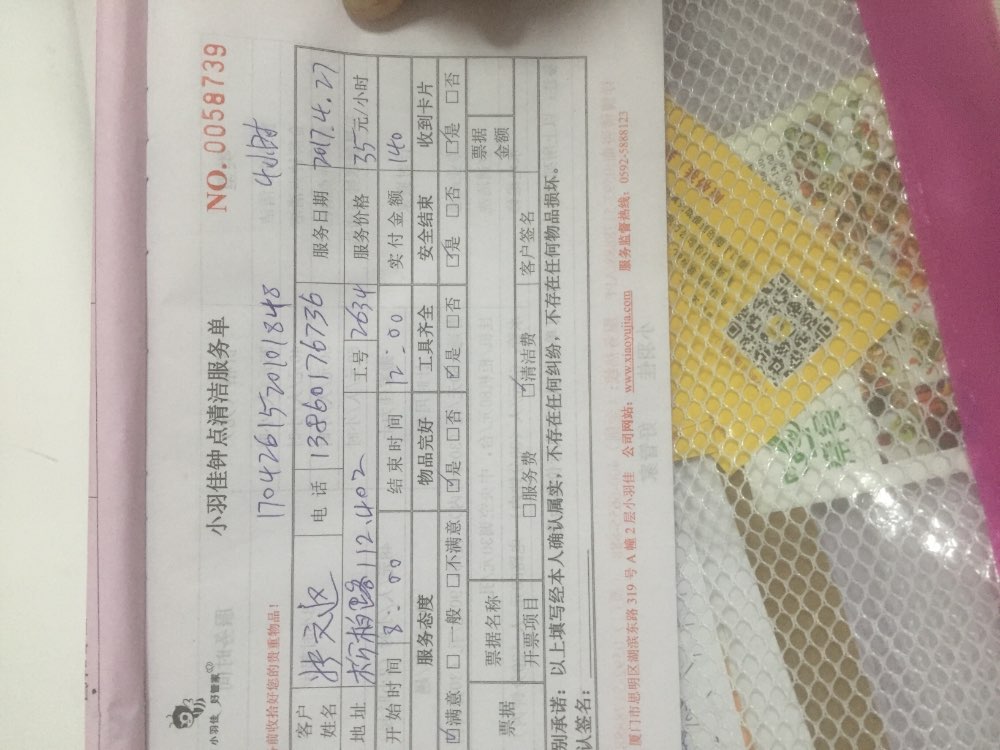 小羽佳 好管家
小羽佳钟点清洁服务单
NO. 0058739
前收拾好您的贵重物品!
1704261520101848 4小时
客户姓名 电话 13860176736 服务日期 2017.4.27
地址 112.402 工号 2634 服务价格 35元/小时
开始时间 8:00 结束时间 12:00 实付金额 140
服务态度 物品完好 工具齐全 安全结束 收到卡片
☑满意 □一般 □不满意 ☑是 □否 ☑是 □否 ☑是 □否 ☑是 □否
票据 票据名称 票据金额
开票项目 □服务费 ☑清洁费 客户签名
别承诺:以上填写经本人确认属实,不存在任何纠纷,不存在任何物品损坏。
认签名:
厦门市思明区湖滨东路319号A幢2层小羽佳 公司网站:www.xiaoyujia.com 服务监督热线:0592-5888123